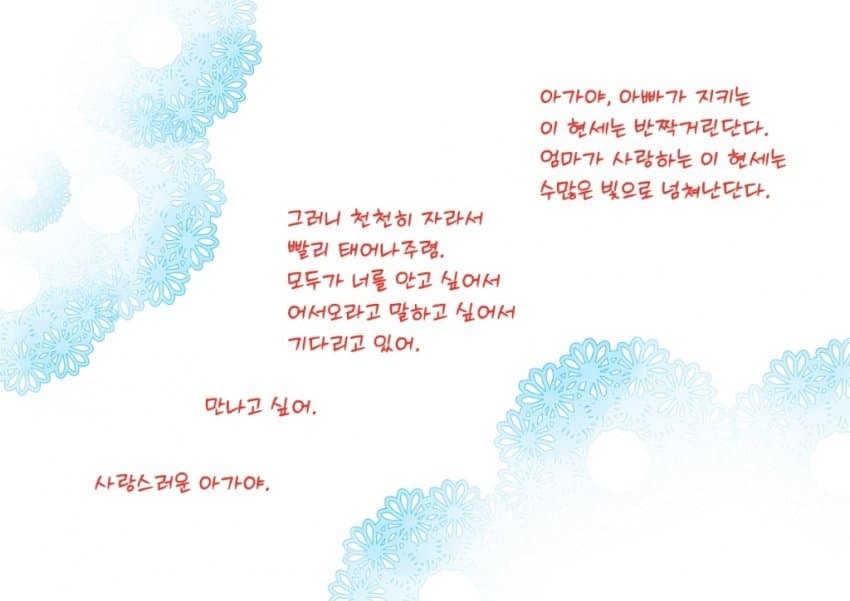 아가야, 아빠가 지키는
이 현세는 반짝거린단다.
엄마가 사랑하는 이 현세는
수많은 빛으로 넘쳐난단다.
그러니 천천히 자라서
빨리 태어나주렴.
모두가 너를 안고 싶어서
어서오라고 말하고 싶어서
기다리고 있어.
만나고 싶어.
사랑스러운 아가야.